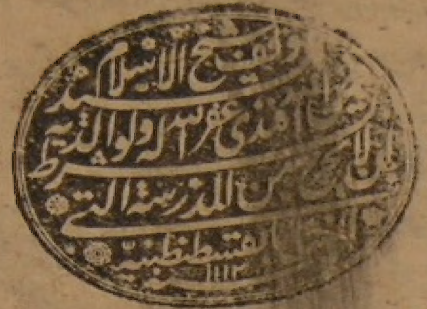 وقف شيخ الاسلام
السيد الله افندى غفر الله له ولوالديه
بشرط ان لا يخرج من المدرسة التى
بقسطنطينية
سنة ١١١٣